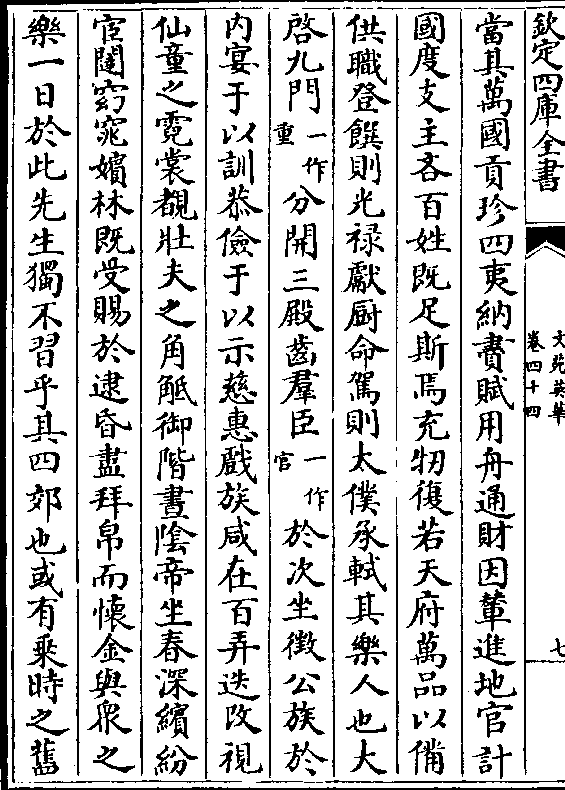 欽定四庫全書
文苑英華
卷四十四
七
當其萬國貢珍四夷納賮賦用舟通財因輦進地官計
國度支主吝百姓既足斯焉充牣復若天府萬品以備
供職登饌則光禄獻厨命駕則太僕承軾其樂人也大
啓九門一作重分開三殿齒羣臣一作官於次坐徵公族於
内宴于以訓恭儉于以示慈惠戲族咸在百弄迭改視
仙童之霓裳覩壯夫之角觝御階晝陰帝坐春深繽紛
宦闥窈窕嬪林既受賜於逮昏盡拜帛而懷金與衆之
樂一日於此先生獨不習乎其四郊也或有乗時之舊